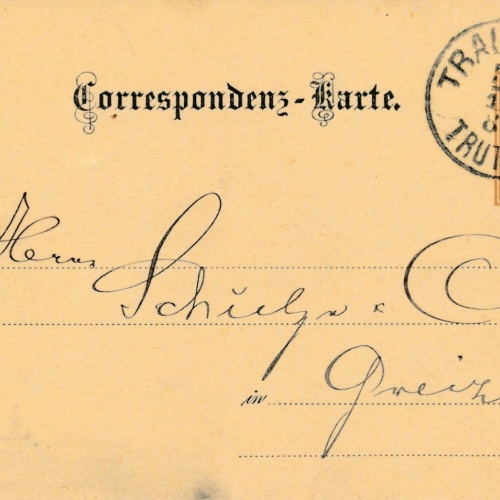 Correspondenz-Karte.
TRAU
TRUT
Herrn
Schulze & C
in Greiz